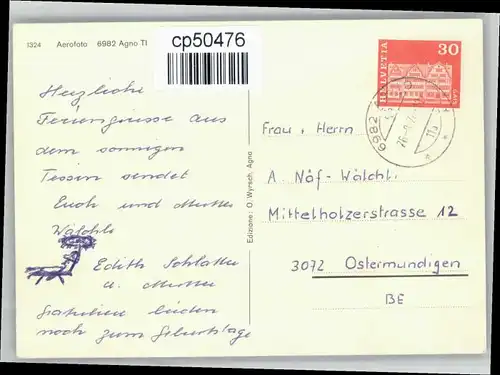 1324 Aerofoto 6982 Agno TI
cp50476
Herzliche
Feriengrüsse aus
dem sonnigen
Tessin sendet
Euch und Mutter
Wälchli
Edith Schlatter
u. Mutter
Gratulieren beiden
noch zum Geburtstage
Edizione: O. Wyrsch, Agno
HELVETIA
30
GAIS
6982
Frau u. Herrn
A. Näf-Wälchli
Mittelholzerstrasse 12
3072 Ostermundigen
BE